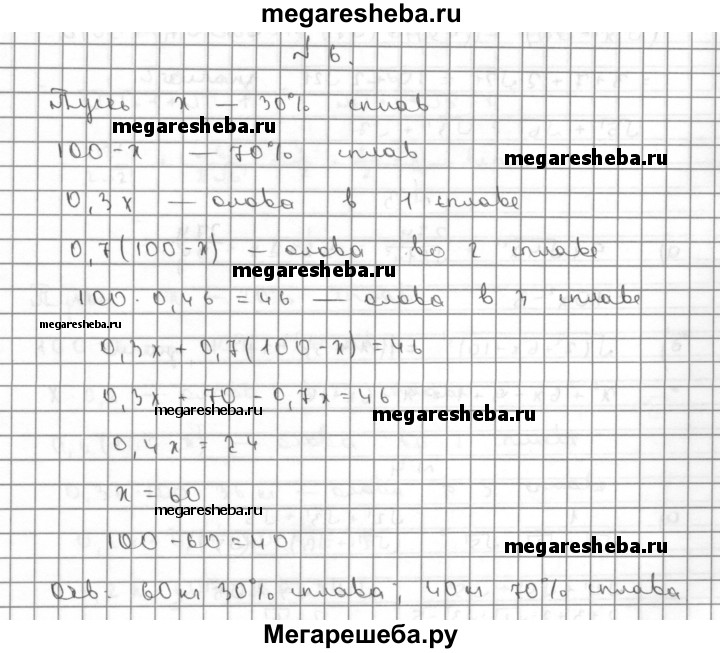 megaresheba.ru
№ 6.
Пусть x — 30% сплав
megaresheba.ru
100-x — 70% сплав
megaresheba.ru
0,3x — олова в 1 сплаве
0,7(100-x) — олова во 2 сплаве
megaresheba.ru
100·0,46=46 — олова в 3 сплаве
megaresheba.ru
0,3x+0,7(100-x)=46
0,3x+70-0,7x=46
megaresheba.ru
megaresheba.ru
0,4x=24
x=60
megaresheba.ru
100-60=40
megaresheba.ru
Отв: 60кг 30% сплава; 40кг 70% сплава
Мегарешеба.ру